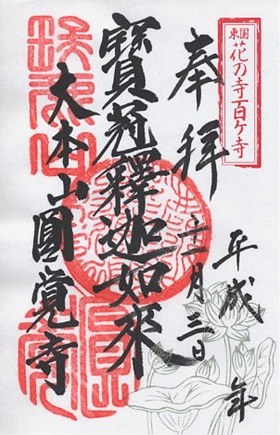 東国
花の寺百ケ寺
奉拝
平成 年
十月三日
寶冠釋迦如來
大本山圓覚寺